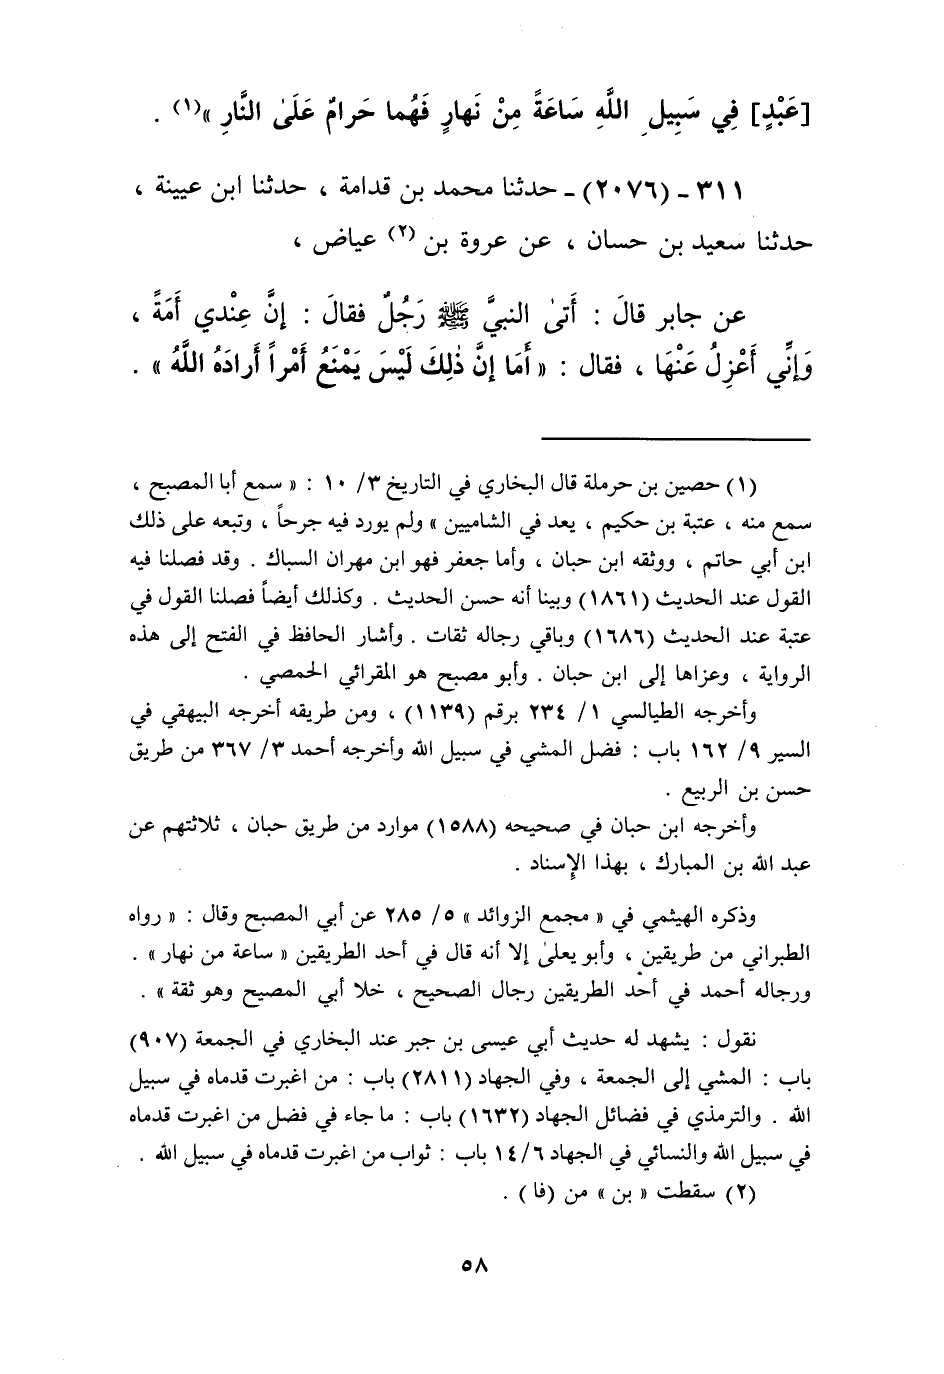 [عَبْدٍ] فِي سَبِيلِ اللَّهِ سَاعَةً مِنْ نَهارٍ فَهُما حَرامٌ عَلَىٰ النَّارِ »(١) .
٣١١ ـ (٢٠٧٦) ـ حدثنا محمد بن قدامة ، حدثنا ابن عيينة ،
حدثنا سعيد بن حسان ، عن عروة بن (٢) عياض ،
عن جابر قالَ : أَتىٰ النبيَّ ﷺ رَجُلٌ فقالَ : إنَّ عِنْدي أَمَةً ،
وَإنِّي أَعْزِلُ عَنْهَا ، فقال : « أَمَا إنَّ ذٰلِكَ لَيْسَ يَمْنَعُ أَمْراً أَرادَهُ اللَّهُ » .
(١) حصين بن حرملة قال البخاري في التاريخ ٣/ ١٠ : « سمع أبا المصبح ،
سمع منه ، عتبة بن حكيم ، يعد في الشاميين » ولم يورد فيه جرحاً ، وتبعه على ذلك
ابن أبي حاتم ، ووثقه ابن حبان ، وأما جعفر فهو ابن مهران السباك . وقد فصلنا فيه
القول عند الحديث (١٨٦١) وبينا أنه حسن الحديث . وكذلك أيضاً فصلنا القول في
عتبة عند الحديث (١٦٨٦) وباقي رجاله ثقات . وأشار الحافظ في الفتح إلى هذه
الرواية ، وعزاها إلى ابن حبان . وأبو مصبح هو المقرائي الحمصي .
وأخرجه الطيالسي ١/ ٢٣٤ برقم (١١٣٩) ، ومن طريقه أخرجه البيهقي في
السير ٩/ ١٦٢ باب : فضل المشي في سبيل الله وأخرجه أحمد ٣/ ٣٦٧ من طريق
حسن بن الربيع .
وأخرجه ابن حبان في صحيحه (١٥٨٨) موارد من طريق حبان ، ثلاثتهم عن
عبد الله بن المبارك ، بهذا الإسناد .
وذكره الهيثمي في « مجمع الزوائد » ٥/ ٢٨٥ عن أبي المصبح وقال : « رواه
الطبراني من طريقين ، وأبو يعلىٰ إلا أنه قال في أحد الطريقين « ساعة من نهار » .
ورجاله أحمد في أحد الطريقين رجال الصحيح ، خلا أبي المصبح وهو ثقة » .
نقول : يشهد له حديث أبي عيسى بن جبر عند البخاري في الجمعة (٩٠٧)
باب : المشي إلى الجمعة ، وفي الجهاد (٢٨١١) باب : من اغبرت قدماه في سبيل
الله . والترمذي في فضائل الجهاد (١٦٣٢) باب : ما جاء في فضل من اغبرت قدماه
في سبيل الله والنسائي في الجهاد ١٤/٦ باب : ثواب من اغبرت قدماه في سبيل الله .
(٢) سقطت « بن » من (فا) .
٥٨